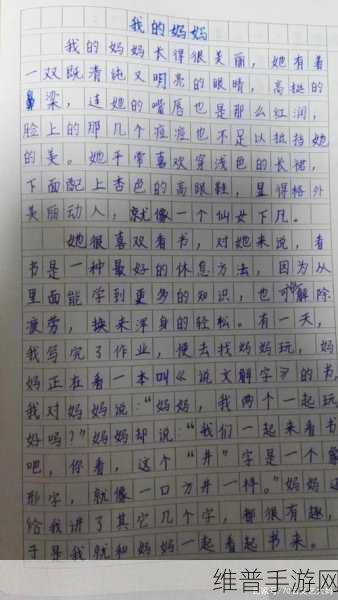 我的妈妈
我的妈妈长得很美丽，她有着
一双既清纯又明亮的眼睛，高挺的
鼻梁，连她的嘴唇也是那么红润，
脸上的那几个痘痘也不足以抵挡她
的美。她平常喜欢穿浅色的长裙，
下面配上杏色的高跟鞋，显得格外
美丽动人，就像一个仙女下凡。
她很喜欢看书，对她来说，看
书是一种最好的休息方法，因为从
里面能学到更多的知识，也可解除
疲劳，换来浑身的轻松。有一天，
我写完了作业，便去找妈妈玩，妈
妈正在看一本叫《说文解字》的书，
我对妈妈说：“妈妈，我两个一起玩
好吗？”妈妈却说：“我们一起来看书
吧，你看，这个“井”字是一个象
形字，就像一口方井一样。”妈妈还
给我讲了其它几个字，都很有趣，
于是我就和妈妈一起看起书来。
维普手游网